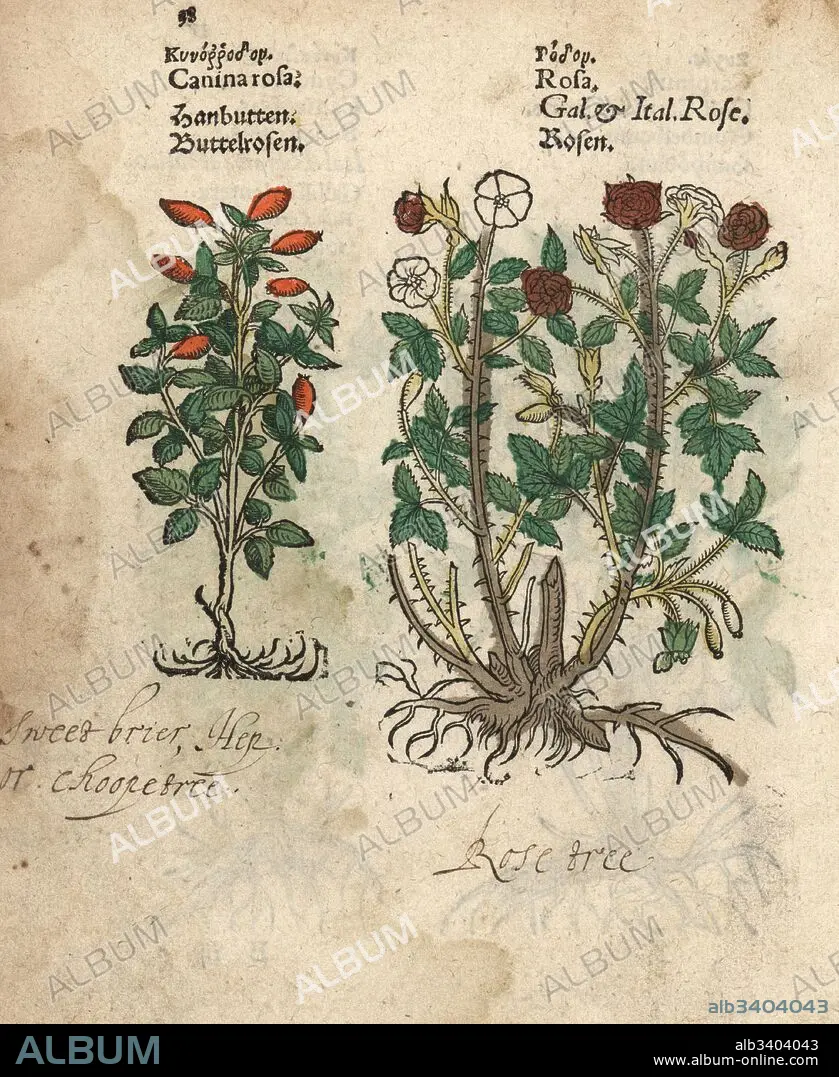 98
Κυνόῤῥοδον.
Canina rosa.
Hanbutten.
Buttelrosen.
Ρόδον.
Rosa.
Gal. & Ital. Rose.
Rosen.
Sweet brier, Hep.
or choopetree.
Rose tree
ALBUM
alb3404043
ALBUM
alb3404043
www.album-online.com